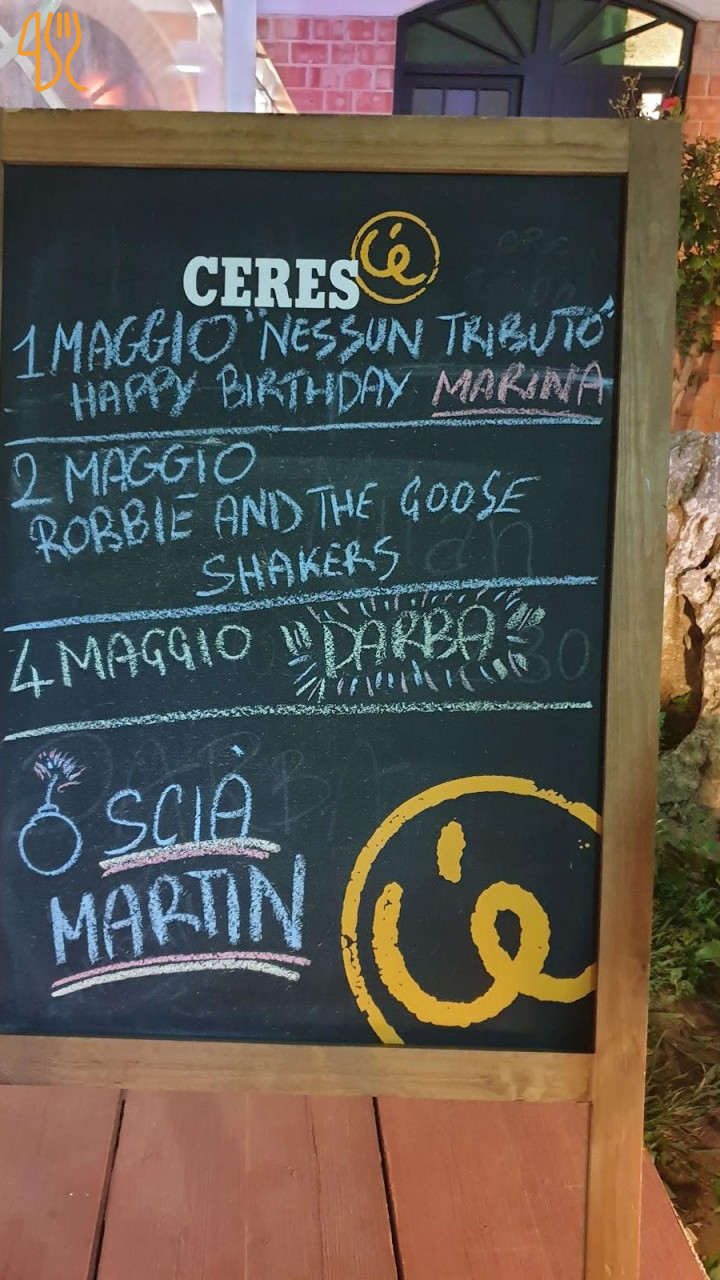 CERES
C'è
1 MAGGIO "NESSUN TRIBUTO"
HAPPY BIRTHDAY MARINA
2 MAGGIO
ROBBIE AND THE GOOSE
SHAKERS
4 MAGGIO "DARBA"
SCIÀ
MARTIN
C'è